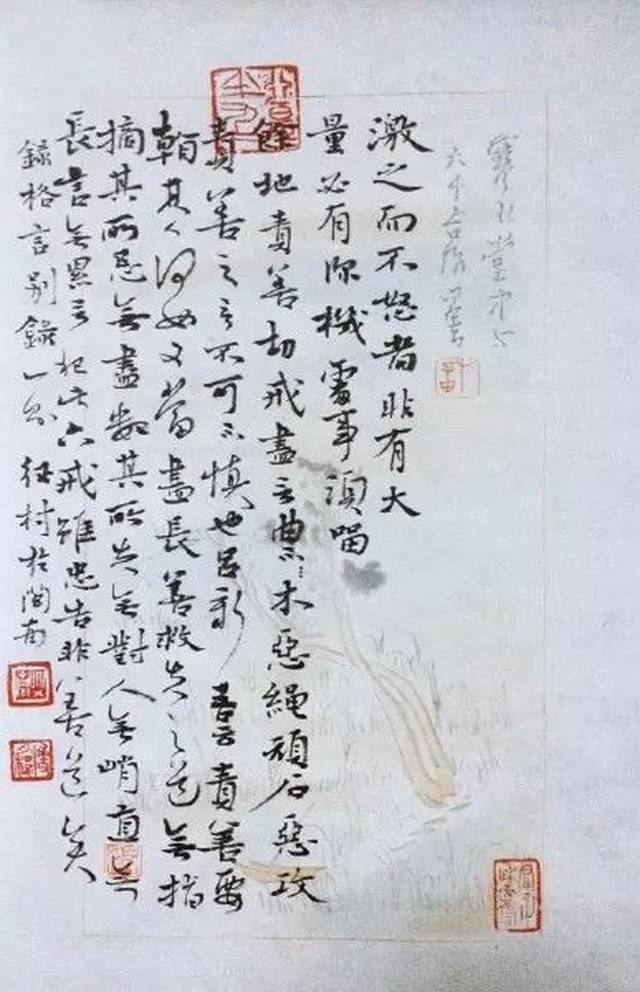 激之而不怒者非有大
量必有深機處事須留
餘地責善切戒盡言曲木惡繩頑石惡攻
責善之言不可不慎也呂新吾云責善要
看其人何如又當盡長善救失之道無指
摘其所忌無盡數其所失無對人無峭直無
長言無累言犯此六戒雖忠告非善道矣
錄格言別錄一則村於閩南